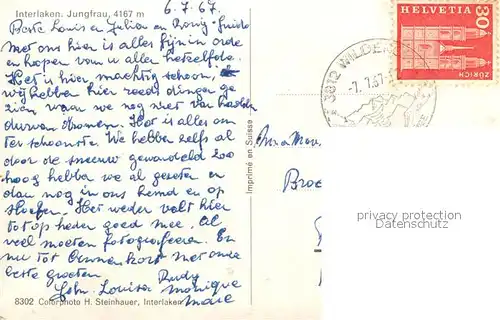 Interlaken. Jungfrau, 4167 m
6.7.67.
Beste Louis en Julien en Romy-Guido
Met ons hier is alles fijn in orde
en hopen van u allen hetzelfde.
Het is hier machtig schoon,
wij hebben hier reeds dingen ge
zien waar we nog niet van hadden
durven dromen. Hier is alles om
ter schoonste. We hebben zelfs al
door de sneeuw gewandeld zoo
hoog hebben we al gezeten en
dan nog in ons hemd en op
sloefen. Het weder valt hier
tot op heden goed mee. Al
veel moeten fotograferen. En
nu tot binnenkort met onze
beste groeten
Rudy
John. Louisa Monique
Marc
8302 Colorphoto H. Steinhauer, Interlaken
Imprimé en Suisse
HELVETIA
30
ZÜRICH
3812 WILDERSWIL
-7. 7.67-
Broe
privacy protection
Datenschutz